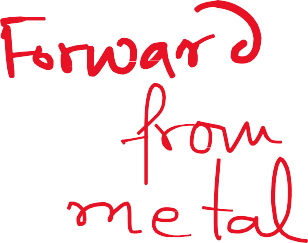 Forward
from
metal